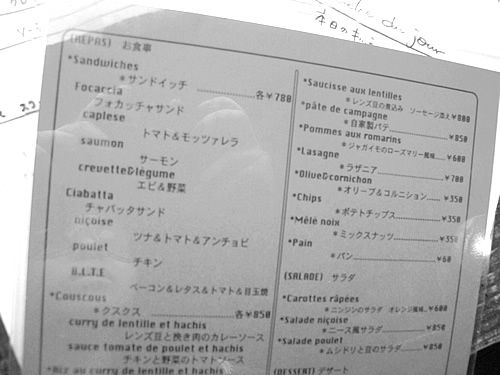 du jour
(REPAS) お食事
*Sandwiches
*サンドイッチ ........ 各¥700
Focaccia
フォカッチャサンド
caplese
トマト&モッツァレラ
saumon
サーモン
crevette&légume
エビ&野菜
Ciabatta
チャバッタサンド
niçoise
ツナ&トマト&アンチョビ
poulet
チキン
B.L.T.E
ベーコン&レタス&トマト&目玉焼
*Couscous
*クスクス ........ 各¥850
curry de lentille et hachis
レンズ豆と挽き肉のカレーソース
sauce tomate de poulet et hachis
チキンと野菜のトマトソース
*Riz au curry de lentille et hachis
*Saucisse aux lentilles
*レンズ豆の煮込み ソーセージ添え¥800
*pâte de campagne
*自家製パテ ........ ¥850
*Pommes aux romarins
*ジャガイモのローズマリー風味....¥600
*Lasagne
*ラザニア ........ ¥700
*Olive&cornichon
*オリーブ&コルニション....¥350
*Chips
*ポテトチップス ........ ¥350
*Mélè noix
*ミックスナッツ ........ ¥350
*Pain
*パン ........ ¥60
(SALADE) サラダ
*Carottes râpées
*ニンジンのサラダ オレンジ風味..¥600
*Salade niçoise
*ニース風サラダ ........ ¥850
*Salade poulet
*ムシドリと豆のサラダ ........ ¥850
(DESSERT) デザート